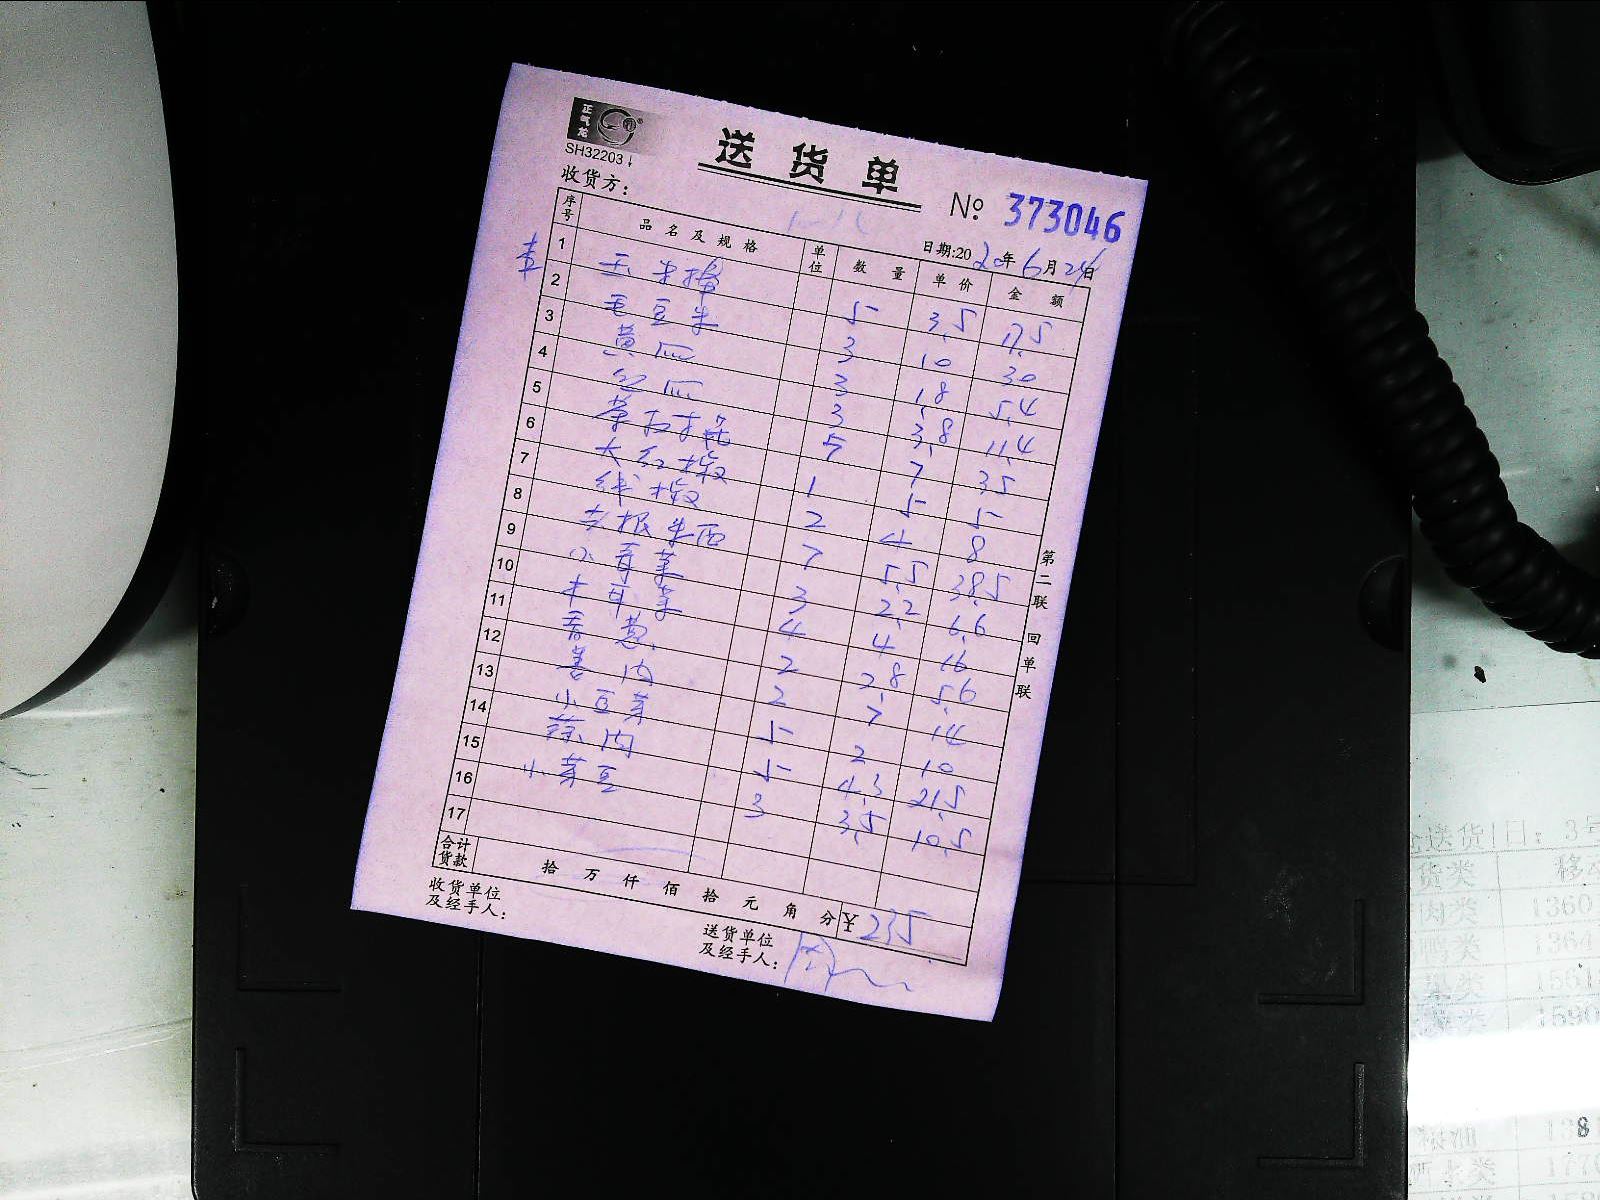 正气龙
SH32203
送货单
№ 373046
收货方：
日期:2020年6月24日
序号 品名及规格 单位 数量 单价 金额
1 玉米棒 5 3.5 17.5
2 毛豆米 3 10 30
3 黄瓜 3 1.8 5.4
4 瓜 3 3.8 11.4
5 5 7 35
6 大红椒 1 5 5
7 线椒 2 4 8
8 7 5.5 38.5
9 小青菜 3 2.2 6.6
10 木耳菜 4 4 16
11 香葱 2 2.8 5.6
12 2 7 14
13 小豆芽 5 2 10
14 蒜肉 5 4.3 21.5
15 小芽豆 3 3.5 10.5
16
17
合计货款 拾 万 仟 佰 拾 元 角 分 ¥ 235
收货单位及经手人：
送货单位及经手人：
第二联 回单联
送货 日：3号
货类
肉类 1360
类 1364
类 1561
类 1590
粮油
类 1770